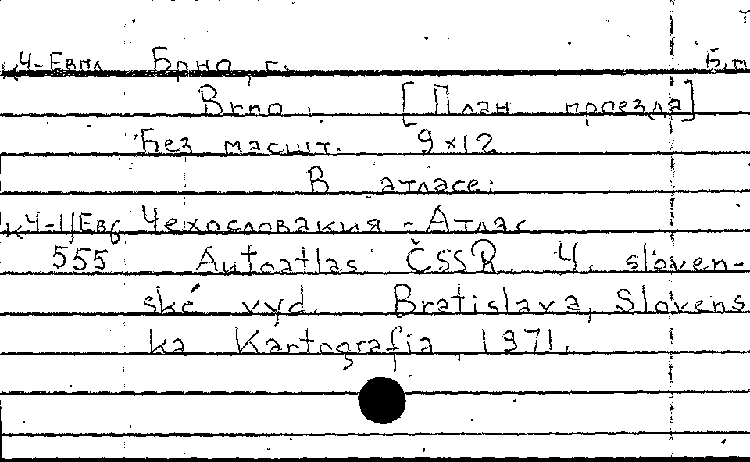 к4-Евпл Брно, г. Б.п
Brno. [План проезда]
Без масшт. 9x12
В атласе:
к4-ЦЕвб Чехословакия - Атлас
555 Autoatlas ČSSR 4. sloven-
ské vyd. Bratislava, Slovens
ka Kartografia, 1971.